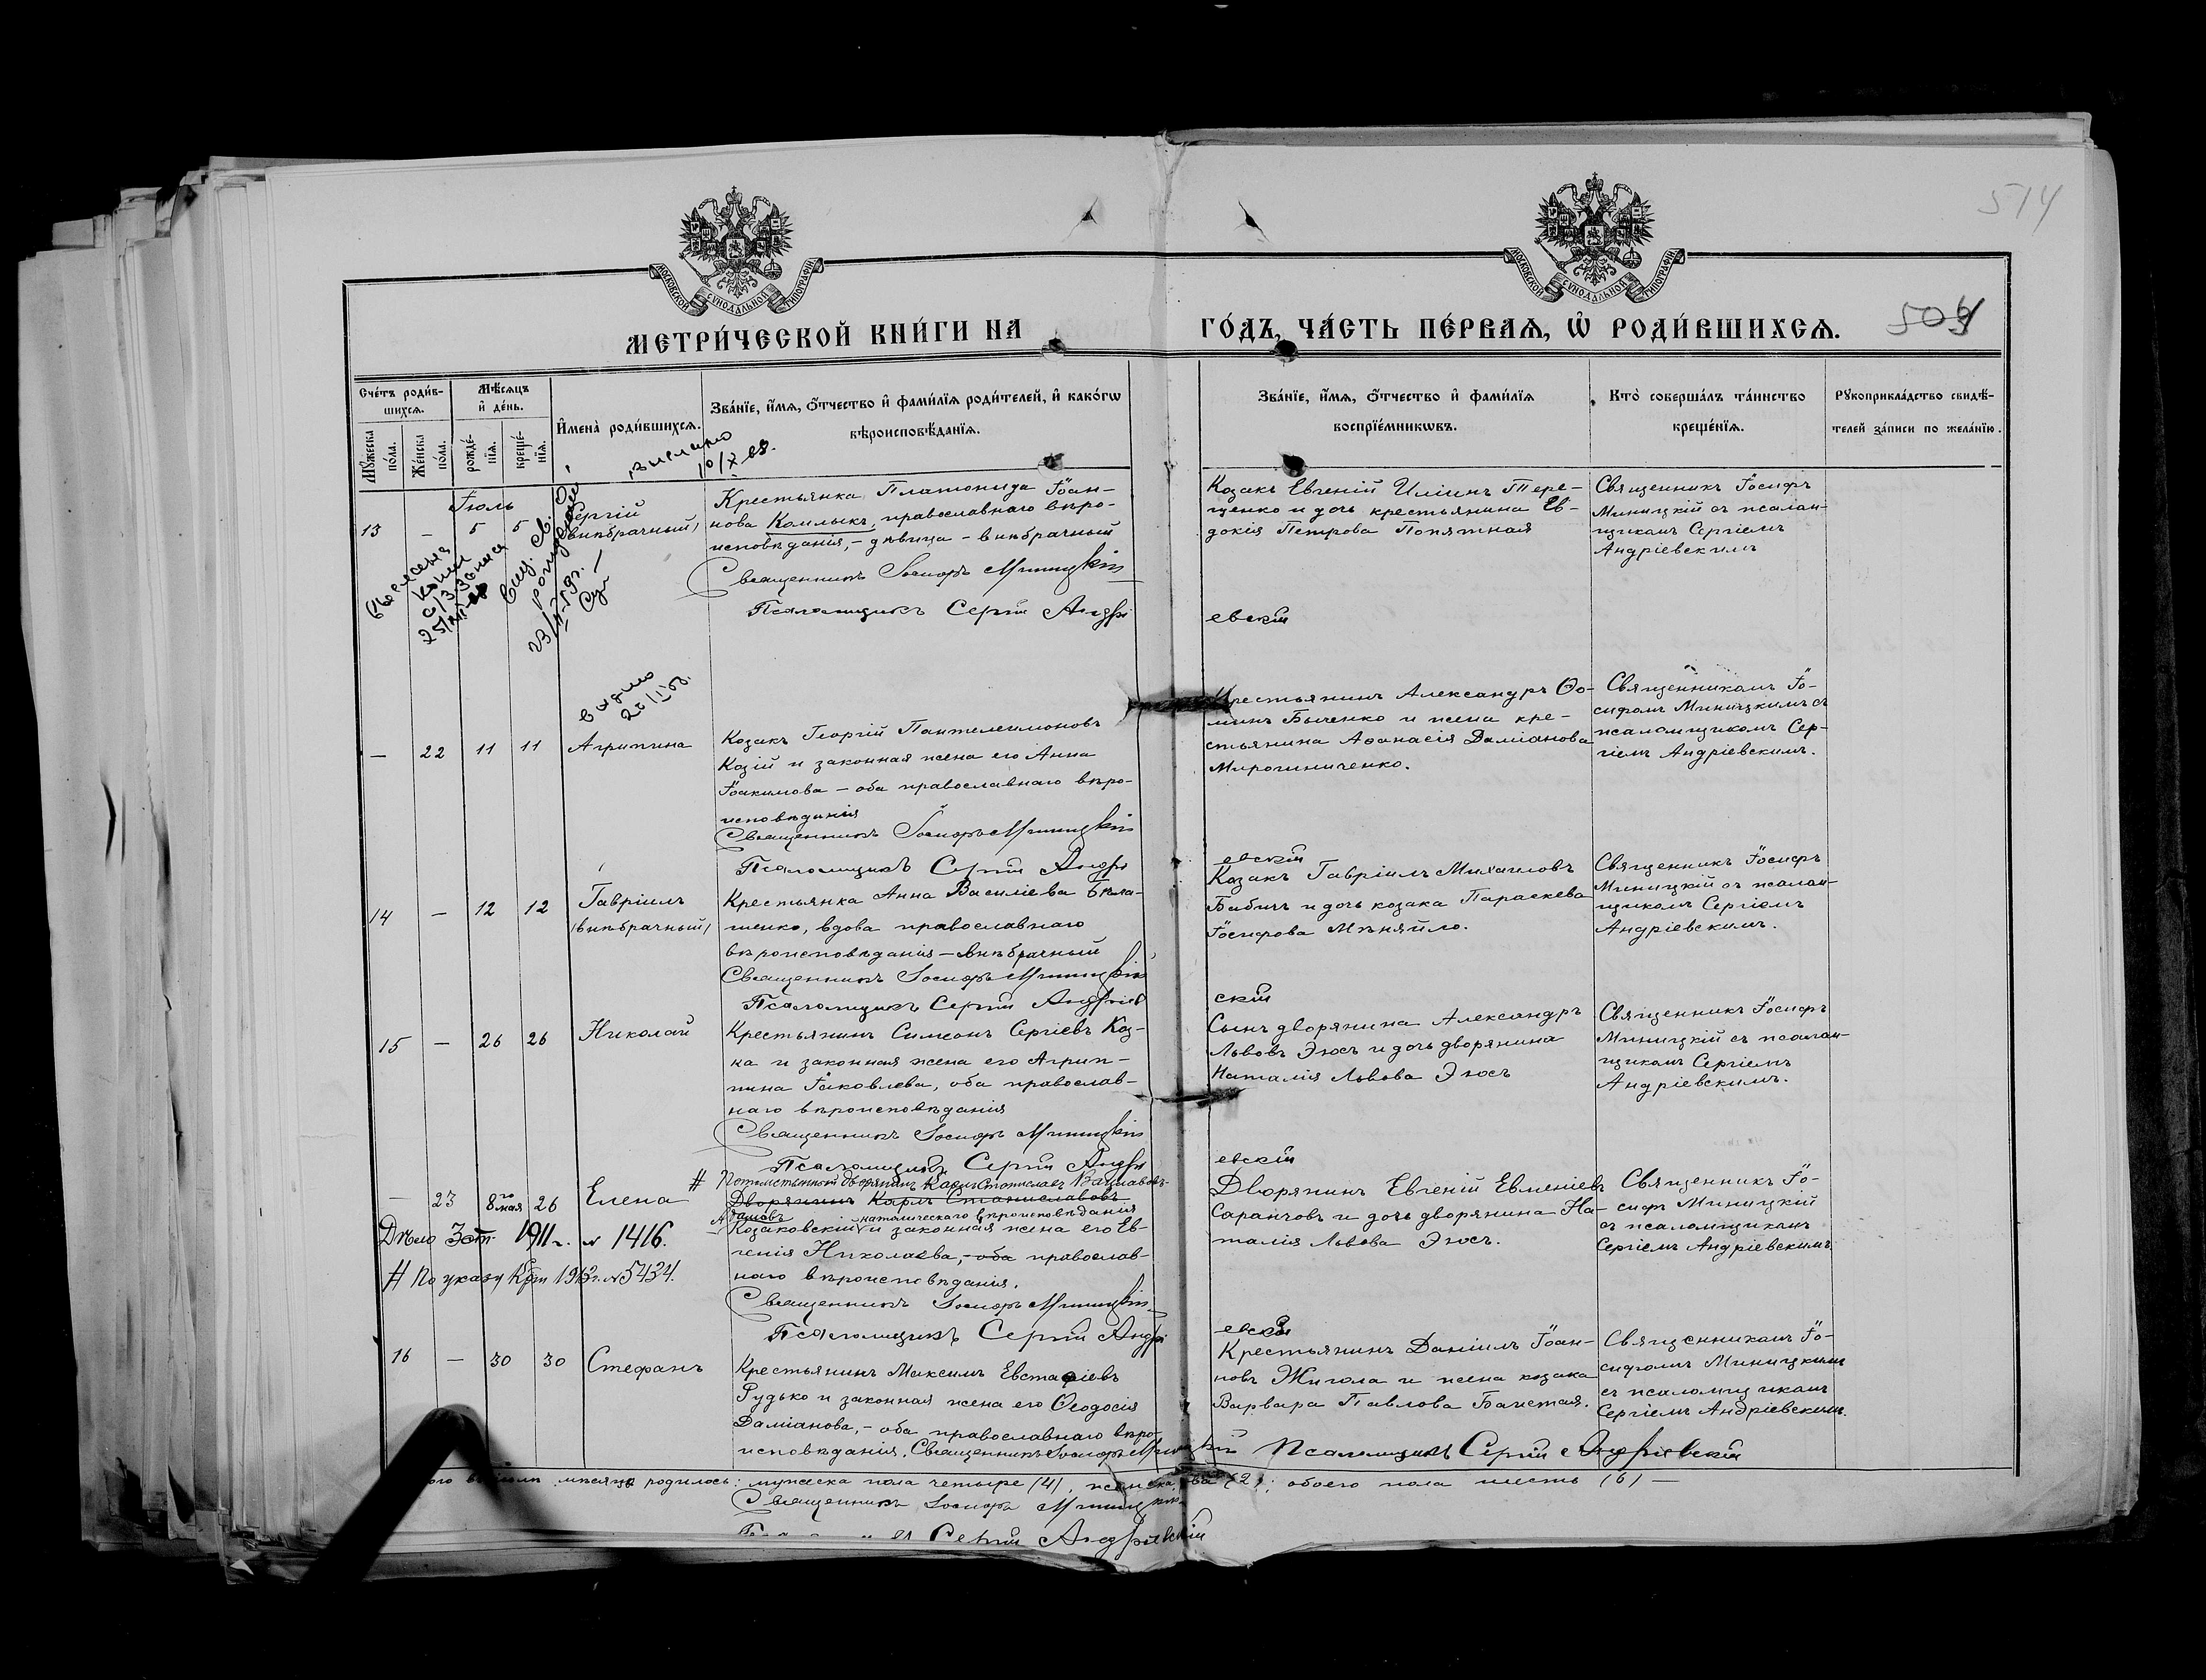 514
МОСКОВСКОЙ СѴНОДАЛЬНОЙ ТИПОГРАФІИ
МОСКОВСКОЙ СѴНОДАЛЬНОЙ ТИПОГРАФІИ
МЕТРИ́ЧЕСКОЙ КНИ́ГИ НА
ГО́ДЪ, ЧА́СТЬ ПЕ́РВАѦ, Ѡ҆ РОДИ́ВШИХСѦ.
Сче́тъ роди́в-
шихсѧ.
Мꙋ́жеска
по́ла.
Же́нска
по́ла.
Мѣ́сѧцъ
и҆ де́нь.
рожде́-
нїѧ.
креще́-
нїѧ.
И҆мена̀ роди́вшихсѧ.
Зва́нїе, и҆́мѧ, ѻ҆́тчество и҆ фами́лїѧ роди́телей, и҆ како́гѡ
вѣроисповѣ́данїѧ.
Зва́нїе, и҆́мѧ, ѻ҆́тчество и҆ фами́лїѧ
воспрїе́мникѡвъ.
Кто̀ соверша́лъ та́инство
креще́нїѧ.
Рꙋкоприкла́дство свидѣ́-
телей за́писи по жела́нїю.
выслано
10/X 88.
Іюль
13
–
5
5
Сергій
(внѣбрачный)
Крестьянка Платонида Іоан-
нова Комлыкъ, православнаго вѣро-
исповѣданія, – дѣвица – внѣбрачный
Священникъ Іосифъ Миницкій
Псаломщикъ Сергій Андрі
евскій
Козакъ Евгеній Иліинъ Тере-
щенко и дочь крестьянина Ев-
докія Петрова Попятная
Священникъ Іосифъ
Миницкій съ псалом-
щикомъ Сергіемъ
Андріевскимъ
—
22
11
11
Агрипина
Козакъ Георгій Пантелеимоновъ
Козій и законная жена его Анна
Іоакимова – оба православнаго вѣро-
исповѣданія
Священникъ Іосифъ Миницкій
Псаломщикъ Сергій Андрі
евскій
Крестьянинъ Александръ Ѳо-
минъ Быченко и жена кре-
стьянина Аѳанасія Даміанова
Мирошниченко.
Священникомъ Іо-
сифомъ Миницкимъ съ
псаломщикомъ Сер-
гіемъ Андріевскимъ.
14
–
12
12
Гавріилъ
(внѣбрачный)
Крестьянка Анна Василіева
шенко, вдова православнаго
вѣроисповѣданія – внѣбрачный
Священникъ Іосифъ Миницкій
Псаломщикъ Сергій Андріев
скій
Козакъ Гавріилъ Михаиловъ
Бабичъ и дочь козака Параскева
Іосифова Мѣняйло.
Священникъ Іосифъ
Миницкій съ псалом-
щикомъ Сергіемъ
Андріевскимъ.
15
–
26
26
Николай
Крестьянинъ Симеонъ Сергіевъ Коз-
ка и законная жена его Агрип-
пина Іаковлева, оба православ-
наго вѣроисповѣданія
Священникъ Іосифъ Миницкій
Псаломщикъ Сергій Андрі
евскій
Сынъ дворянина Александръ
Львовъ Эюсъ и дочь дворянина
Наталія Львова Эюсъ
Священникъ Іосифъ
Миницкій съ псалом-
щикомъ Сергіемъ
Андріевскимъ.
—
23
8го мая
26
Елена
# Потомственный дворянинъ Карлъ-Станиславъ
Дворянинъ Карлъ Станиславовъ
католическаго вѣроисповѣданія
Козаковскій и законная жена его Ев-
генія Николаева, – оба православ-
наго вѣроисповѣданія.
Священникъ Іосифъ Миницкій
Псаломщикъ Сергій Андрі
евскій
Дѣло 3 ст. 1911 г. № 1416.
# По указу 1913 г. № 5434.
Дворянинъ Евгеній Евменіевъ
Саранчовъ и дочь дворянина На-
талія Львова Эюсъ.
Священникъ Іо-
сифъ Миницкій
съ псаломщикомъ
Сергіемъ Андріевскимъ
16
—
30
30
Стефанъ
Крестьянинъ Максимъ Евстафіевъ
Рудько и законная жена его Ѳеодосія
Даміанова, – оба православнаго вѣро-
исповѣданія. Священникъ Іосифъ Миницкій Псаломщикъ Сергій Андріевскій
Крестьянинъ Даніилъ Іоан-
новъ Жигола и жена козака
Варвара Павлова
Священникомъ Іо-
сифомъ Миницкимъ
съ псаломщикомъ
Сергіемъ Андріевскимъ.
мѣсяцѣ родилось: мужеска пола четыре (4), женска два (2); обоего пола шесть (6) —
Священникъ Іосифъ Миницкій
Сергій Андріевскій